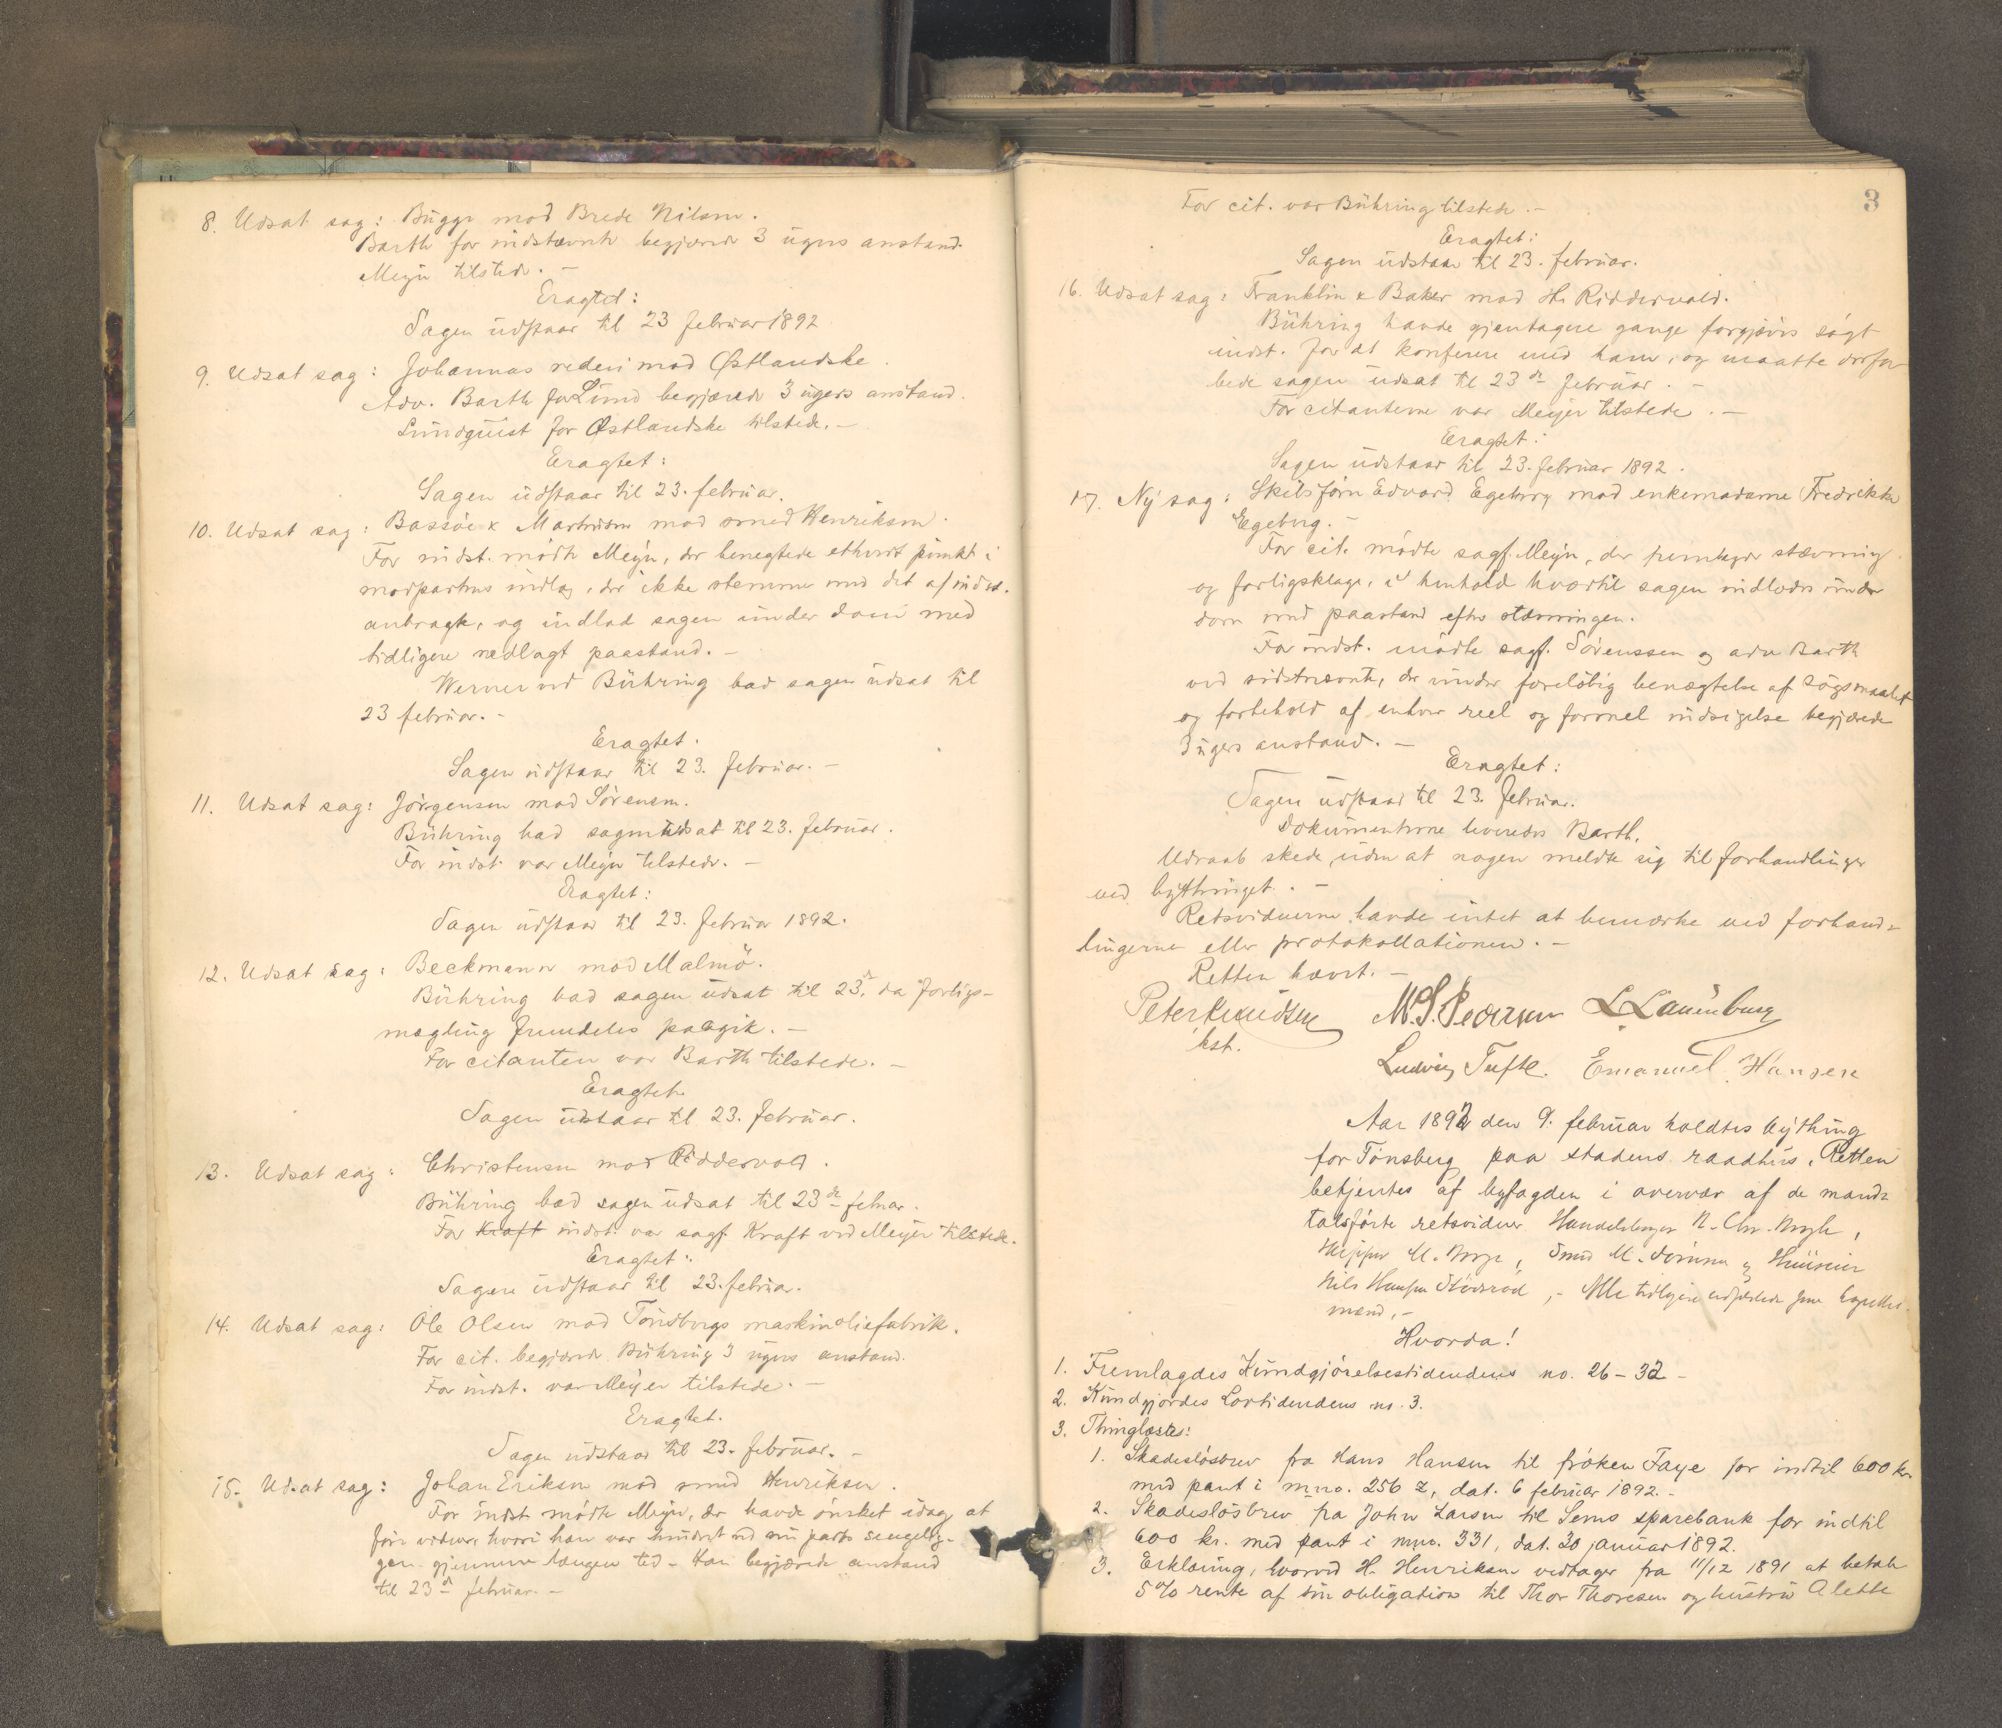 8. Udsat sag: Bugge mod Brede Nilsen.
Barth for indstævnte begjærede 3 ugers anstand.
Meyn tilstede. —
Eragtet:
Sagen udstaar til 23 februar 1892
9. Udsat sag: Johannas rederi mod Østlandske.
Adv. Barth for Lund begjærede 3 ugers anstand.
Lundquist for Østlandske tilstede. —
Eragtet:
Sagen udstaar til 23. februar.
10. Udsat sag: Bassøe & Martinsen mod smed Henriksen.
For indst. mødte Meyn, der benegtede ethvert punkt i
modpartens indlæg, der ikke stemme med det af indst.
anbragte, og indlod sagen under dom med
tidligere nedlagt paastand. —
Werner ved Bühring bad sagen udsat til
23 februar. —
Eragtet.
Sagen udstaar til 23. februar. —
11. Udsat sag: Jörgensen mod Sörensen.
Bühring bad sagen udsat til 23. februar.
For indst. var Meyn tilstede. —
Eragtet:
Sagen udstaar til 23. februar 1892.
12. Udsat sag: Beckmann mod Malmö.
Bühring bad sagen udsat til 23. da forligs-
mægling fremdeles paagik. —
For citanten var Barth tilstede. —
Eragtet
Sagen udstaar til 23. februar.
13. Udsat sag: Christensen mod Riddervold.
Bühring bad sagen udsat til 23de februar.
For Kraft indst. var sagf. Kraft ved Meyer tilstede.
Eragtet:
Sagen udstaar til 23. februa.
14. Udsat sag: Ole Olsen mod Tönsbergs maskinoliefabrik.
For cit. begjærede Bühring 3 ugers anstand.
For indst. var Meyer tilstede. —
Eragtet.
Sagen udstaar til 23. februar. —
15. Udsat sag: Johan Eriksen mod smed Henriksen.
For indst mødte Meyn, der havde ønsket idag at
føre vidner, hvori han var hindret ved sin parts sengelig-
gen gjennem længere tid — Han begjærede anstand
til 23de februar. —
3
For cit. var Bühring tilstede. —
Eragtet:
Sagen udstaar til 23. februar.
16. Udsat sag: Franklin & Baker mod H. Riddervold.
Bühring havde gjentagne gange forgjæves søgt
indst. for at konferere med ham, og maatte derfor
bede sagen udsat til 23de februar. —
For citanterne var Meyer tilstede. —
Eragtet:
Sagen udstaar til 23. februar 1892.
17. Ny sag: Skibsförer Edvard Egeberg mod enkemadame Fredrikke
Egeberg. —
For cit. mødte sagf. Meyn, der fremlagde stævning
og forligsklage, i henhold hvortil sagen indlodes under
dom med paastand efter stævningen.
For indst. mødte sagf. Sörenssen og adv Barth
ved sidstnævnte, der under foreløbig benægtelse af søgsmaalet
og forbehold af enhver reel og formel indsigelse begjærede
3 ugers anstand. —
Eragtet:
Sagen udstaar til 23. februar.
Dokumenterne leveredes Barth.
Udraab skede, uden at nogen meldte sig til forhandlinger
ved bythinget. —
Retsvidnerne havde intet at bemærke ved forhand-
lingerne eller protokollationen. —
Retten hævet. —
Peter Knudsen M. S. Pedersen L Lauenburg
kst.
Ludvig Tufte. Emanuel Hansen
Aar 1892 den 9. februar holdtes bything
for Tönsberg paa stadens raadhus. Retten
betjentes af byfogden i overvær af de mand-
talsførte retsvidner Handelsborger N. Chr.
Skipper M. , Smed M. og Huuseier
Nils Hansen , — Alle tidligere som Lagrettes-
mænd, —
Hvorda!
1. Fremlagdes Kundgjørelsestidendens no. 26 — 32 —
2. Kundgjordes Lovtidendens no. 3.
3. Thinglæstes:
1. Skadesløsbrev fra Hans Hansen til frøken Faye for indtil 600 kr.
med pant i mno. 256 z, dat. 6 februar 1892. —
2. Skadesløsbrev fra John Larsen til Sems sparebank for indtil
600 kr. med pant i mno. 331, dat. 30 januar 1892.
3. Erklæring, hvorved H. Henriksen vedtager fra 11/12 1891 at betale
5% rente af sin obligation til Thor Thoresen og hustru Alette